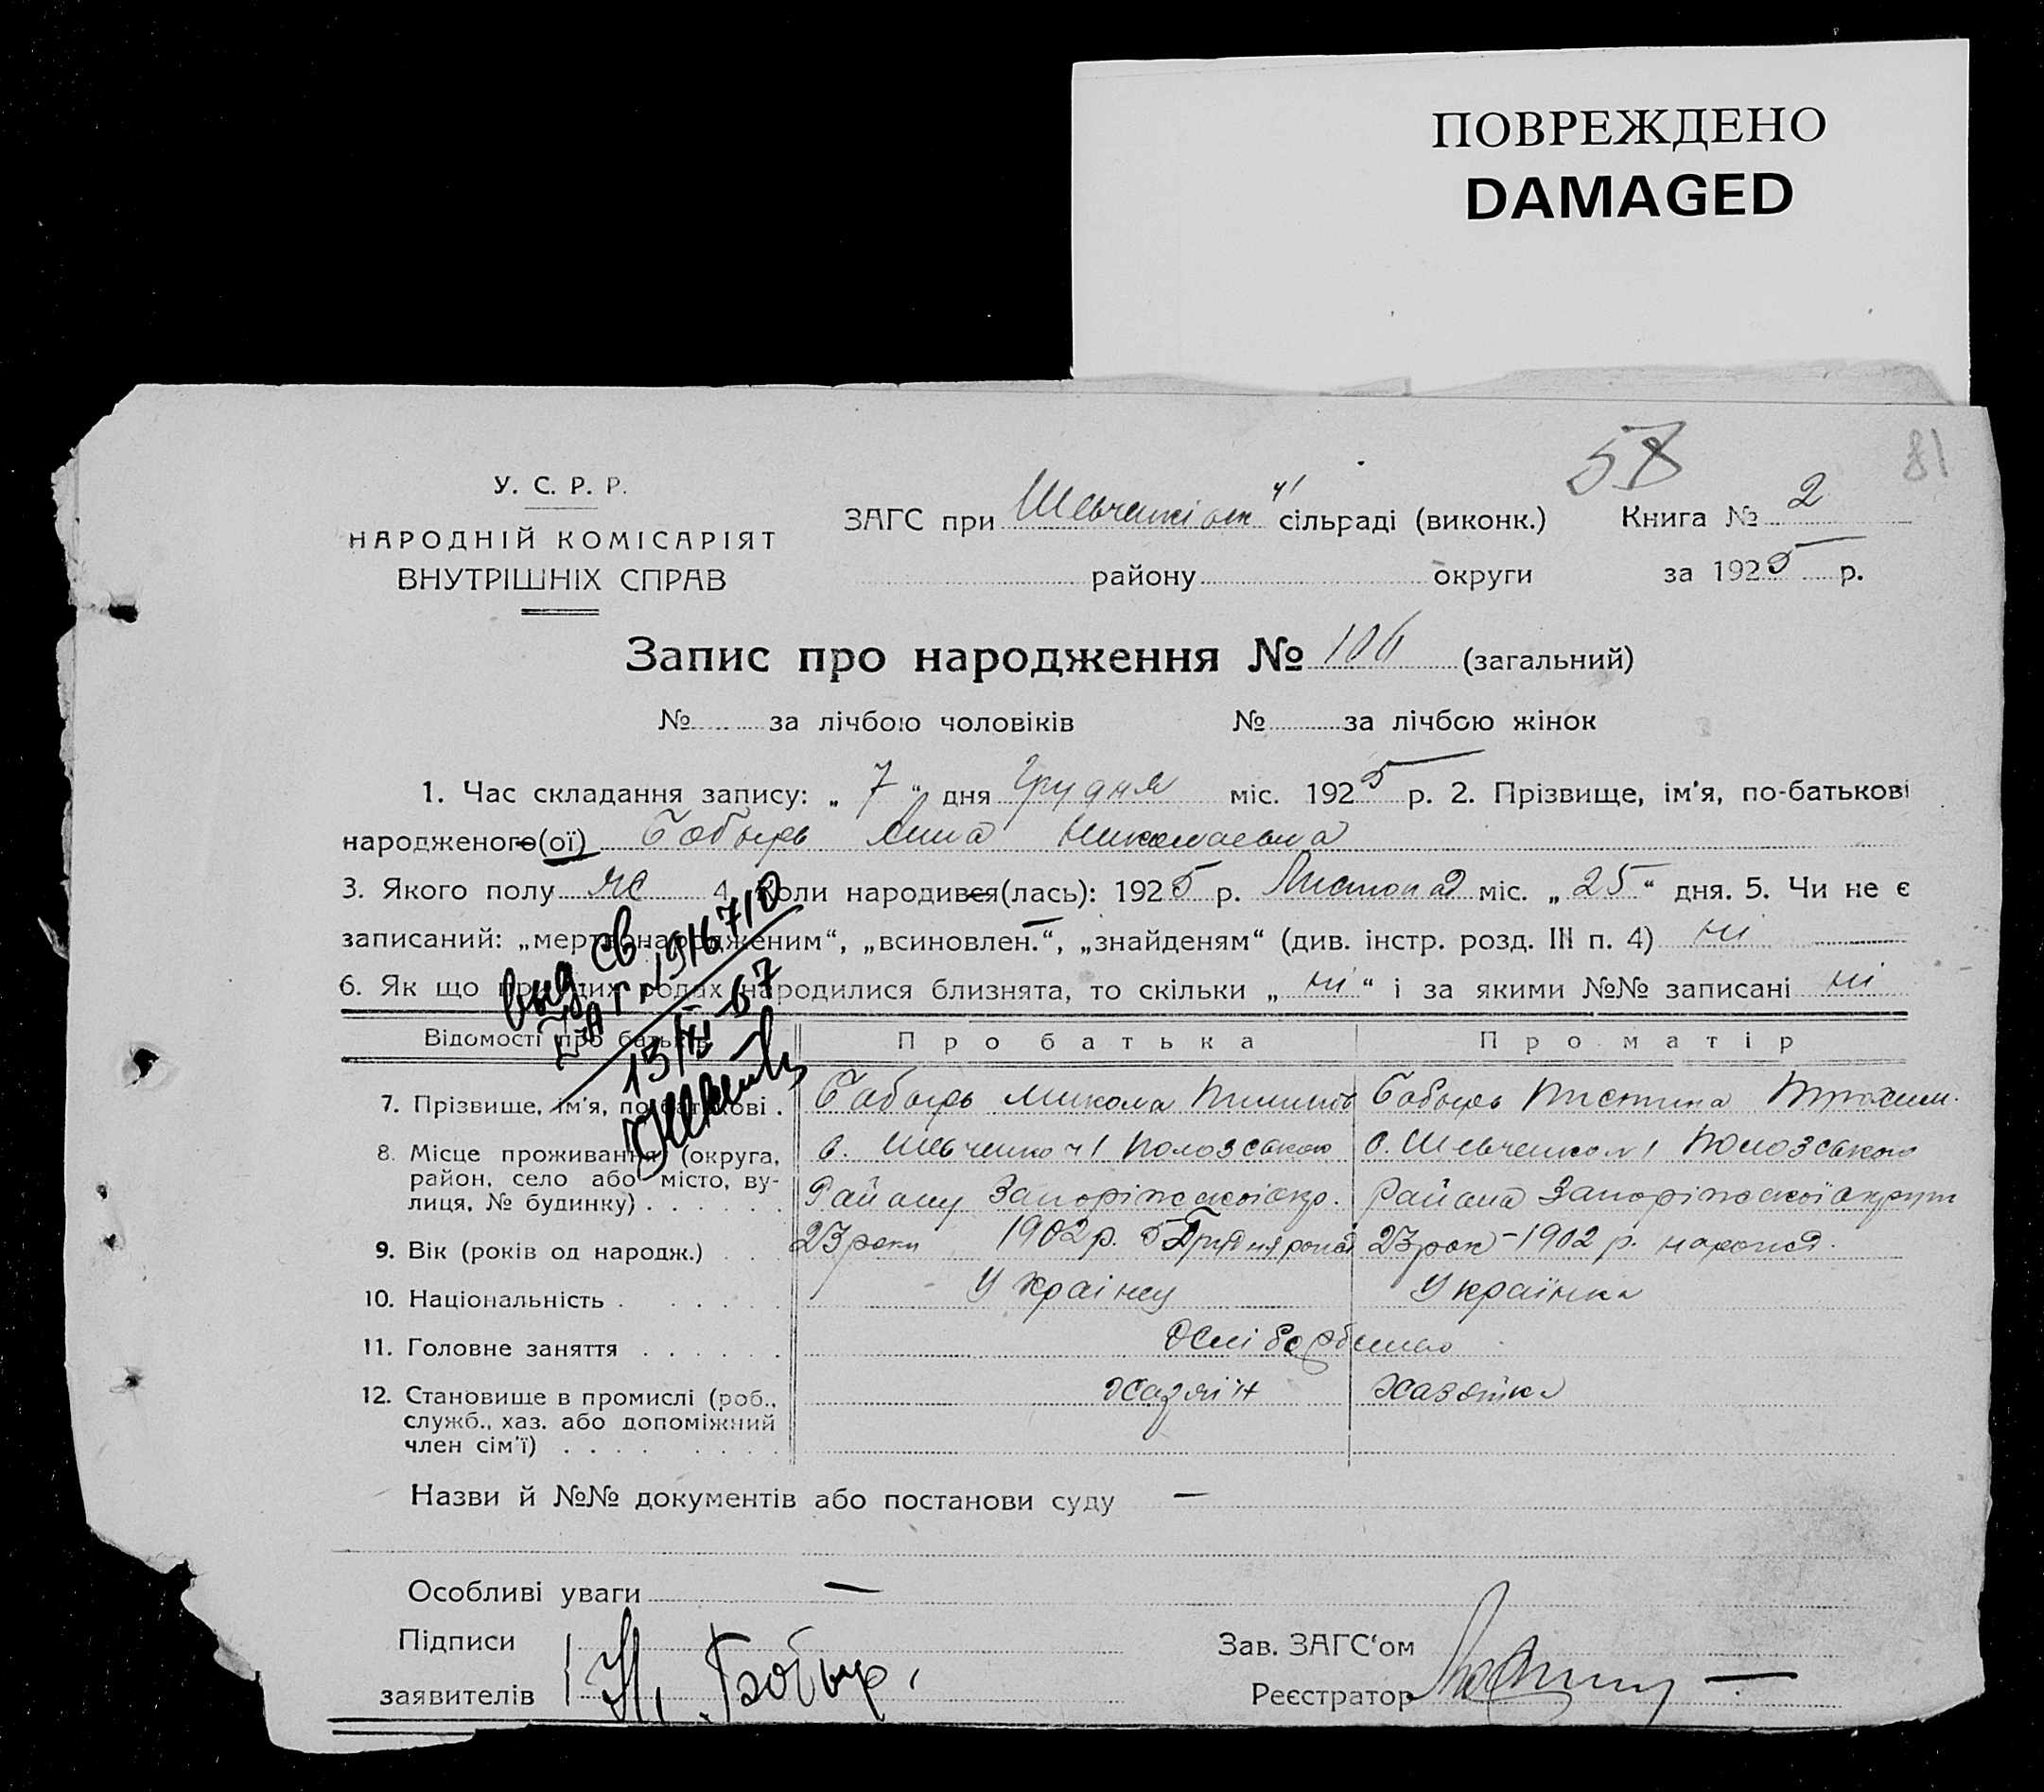 ПОВРЕЖДЕНО
DAMAGED
57 81
У. С. Р. Р.
НАРОДНІЙ КОМІСАРІЯТ
ВНУТРІШНІХ СПРАВ
ЗАГС при сільраді (виконк.) Книга № 2
району округи за 1925 р.
Запис про народження № 106 (загальний)
№ за лічбою чоловіків № за лічбою жінок
1. Час складання запису: „ 7 “ дня Грудня міс. 1925 р. 2. Прізвище, ім'я, по-батькові
народженого(ої) Бобырь Николаевна
3. Якого полу ж 4. Коли народився(лась): 1925 р. Листопад міс. „ 25 “ дня. 5. Чи не є
записаний: „мертвонародженим“, „всиновлен.“, „знайденям“ (див. інстр. розд. III п. 4) ні
6. Як що при цих родах народилися близнята, то скільки „ ні “ і за якими №№ записані ні
Выд св
1916710
13/XI-67
Відомості про батьків Про батька Про матір
7. Прізвище, ім'я, по-батькові . Бобырь Микола Бобырь Трохим.
8. Місце проживання (округа, район, село або місто, вулиця, № будинку) . . . . . . с. Шевченко ч1 Пологського с. Шевченко №1 Пологського
Району Запоріжської окр. Района Запоріжської округи
9. Вік (років од народж.) . . 23 роки 1902 р. 5 Грудня 23 рок - 1902 р.
10. Національність . . . . . . Українка
11. Головне заняття . . . . . . хліборобство
12. Становище в промислі (роб., служб., хаз. або допоміжний член сім'ї) . . . . . . . . хазяїн хазяйка
Назви й №№ документів або постанови суду —
Особливі уваги —
Підписи
заявителів Н. Бобыр.
Зав. ЗАГС‘ом
Реєстратор